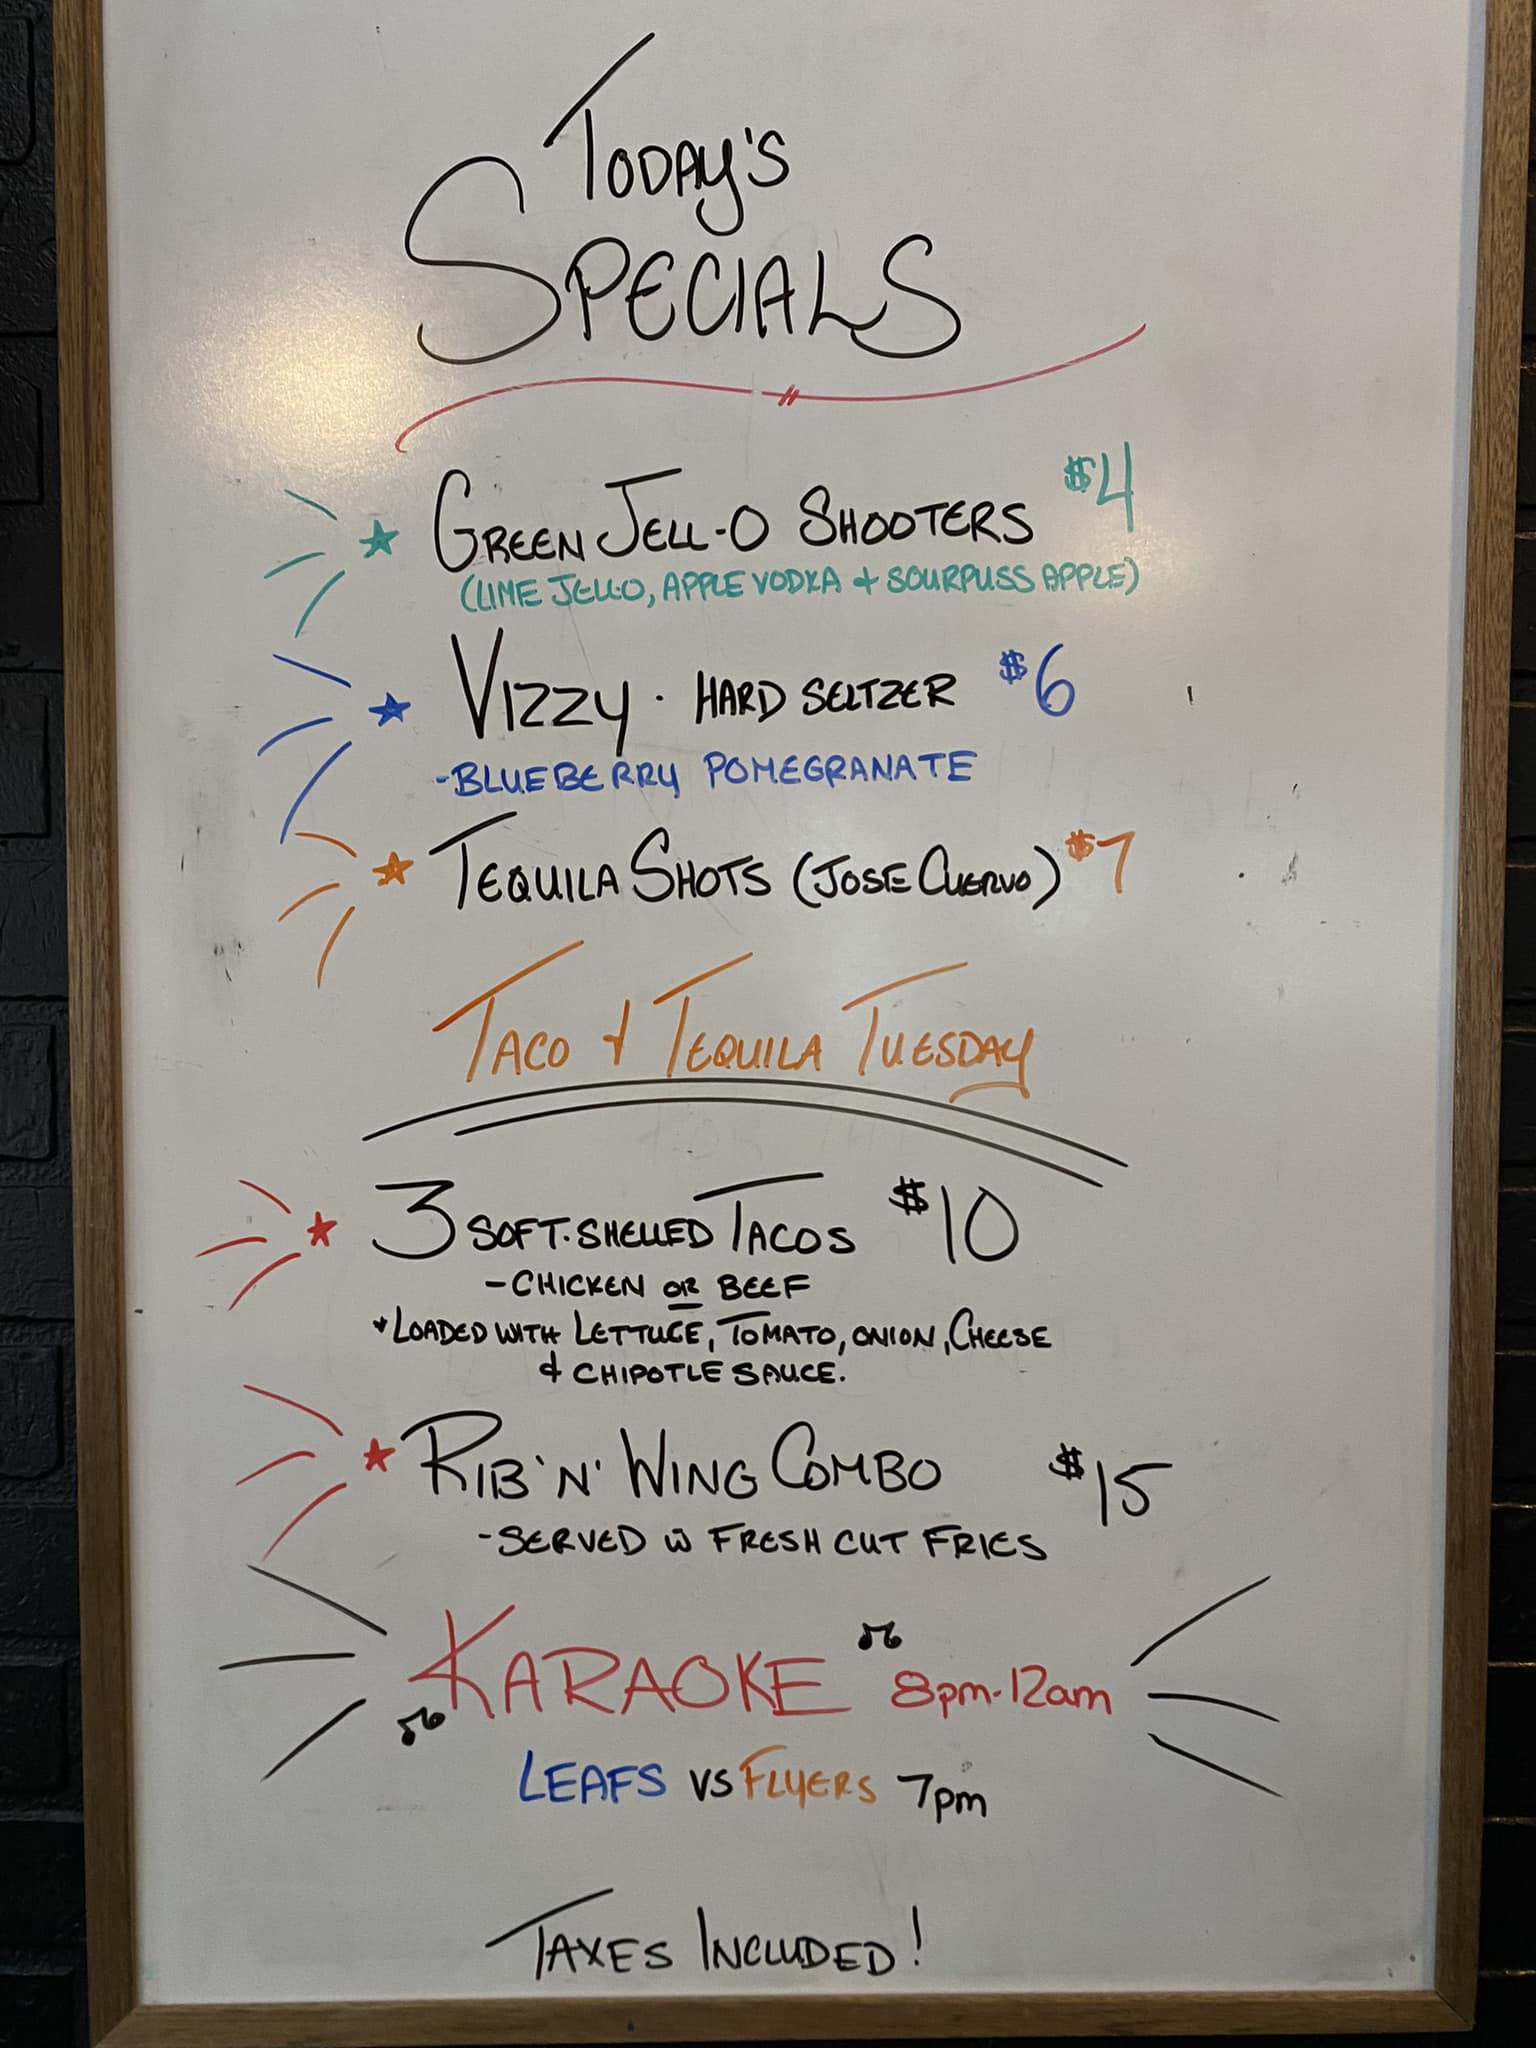 TODAY'S
SPECIALS
GREEN JELL-O SHOOTERS $4
(LIME JELLO, APPLE VODKA & SOURPUSS APPLE)
VIZZY · HARD SELTZER $6
-BLUEBERRY POMEGRANATE
TEQUILA SHOTS (JOSE CUERVO) $7
TACO & TEQUILA TUESDAY
3 SOFT-SHELLED TACOS $10
- CHICKEN OR BEEF
*LOADED WITH LETTUCE, TOMATO, ONION, CHEESE
& CHIPOTLE SAUCE.
RIB 'N' WING COMBO $15
-SERVED W FRESH CUT FRIES
KARAOKE 8pm-12am
LEAFS VS FLYERS 7pm
TAXES INCLUDED!